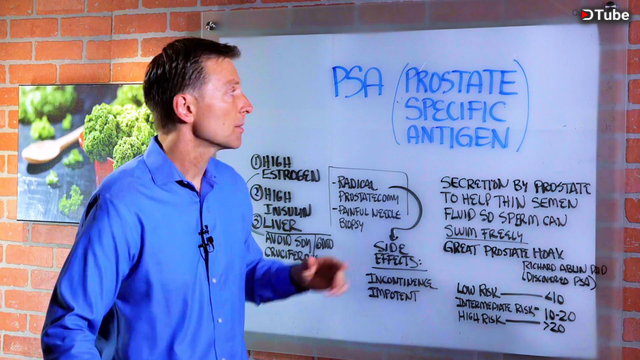 DTube
PSA (PROSTATE
SPECIFIC
ANTIGEN)
① HIGH
ESTROGEN
② HIGH
INSULIN
③ LIVER
AVOID SOY/GMO
CRUCIFERO
- RADICAL
PROSTATECOMY
- PAINFUL NEEDLE
BIOPSY
SIDE
EFFECTS:
INCONTINENCE
IMPOTENT
SECRETION BY PROSTATE
TO HELP THIN SEMEN
FLUID SO SPERM CAN
SWIM FREELY
GREAT PROSTATE HOAX
RICHARD ABLIN PHD
(DISCOVERED PSA)
LOW RISK — <10
INTERMEDIATE RISK — 10-20
HIGH RISK — >20